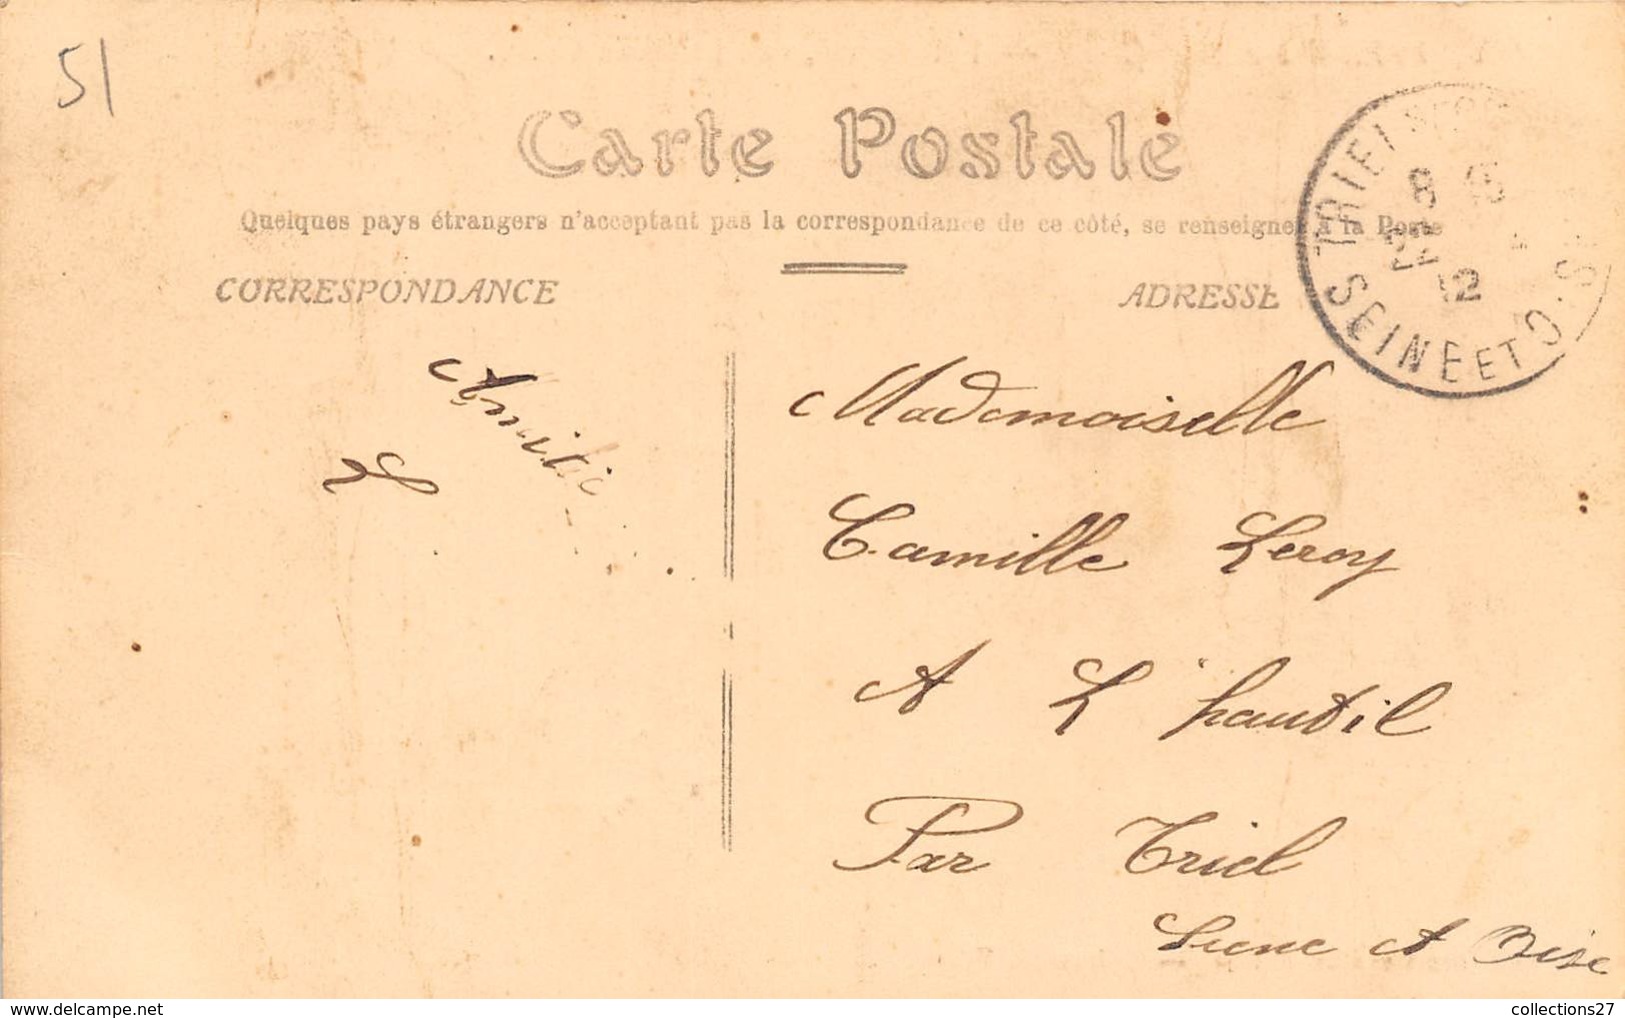 51
Carte Postale
Quelques pays étrangers n'acceptant pas la correspondance de ce côté, se renseigner à la Poste
CORRESPONDANCE
ADRESSE
TRIEL
8
12
SEINE ET O.
Amitié
L
Mademoiselle
Camille Leroy
A L'hautil
Par Triel
Seine et Oise
collections27